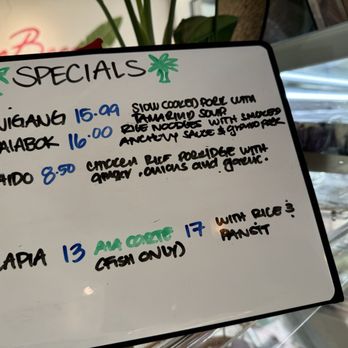 SPECIALS
NIGANG 15.99 SLOW COOKED PORK WITH
TAMARIND SOUP
LABOK 16.00 RICE NOODLES WITH SMOKED
ANCHOVY SAUCE & GROUND PORK
DO 8.50 CHICKEN RICE PORRIDGE WITH
GINGER, ONIONS AND GARLIC.
LAPIA 13 ALA CARTE 17 WITH RICE &
(FISH ONLY) PANSIT